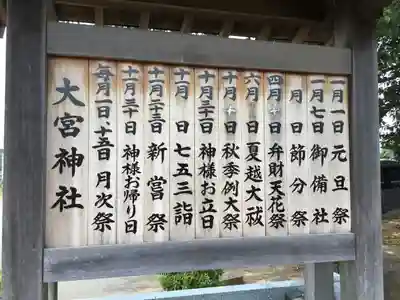 一月一日元旦祭
一月七日御備社
月日節分祭
四月十日弁財天花祭
六月日夏越大祓
十月十日秋季例大祭
十月三十一日神様お立日
十一月日七五三詣
十一月二十三日新営祭
十一月三十日神様お帰り日
毎月一日、十五日月次祭
大宮神社